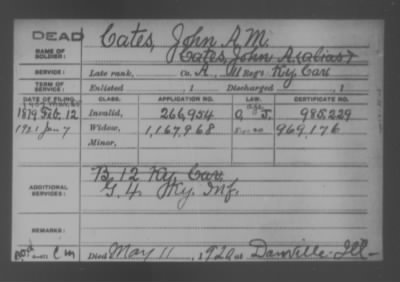 DEAD
Cates, John A.M.
NAME OF SOLDIER:
Cates, John A (alias)
SERVICE:
Late rank, Co. A, 11 Reg't Ky. Cav
TERM OF SERVICE:
Enlisted , 1 Discharged , 1
DATE OF FILING. CLASS. APPLICATION NO. LAW. CERTIFICATE NO.
1879 Feb. 12 Invalid, 266,954 985,229
1921 Jan 7 Widow, 1,167,968 969,176
Minor,
ADDITIONAL SERVICES:
B. 12 Ky. Cav.
G. 4. Ky. Inf.
REMARKS:
Died May 11, 1920 at Danville Ill